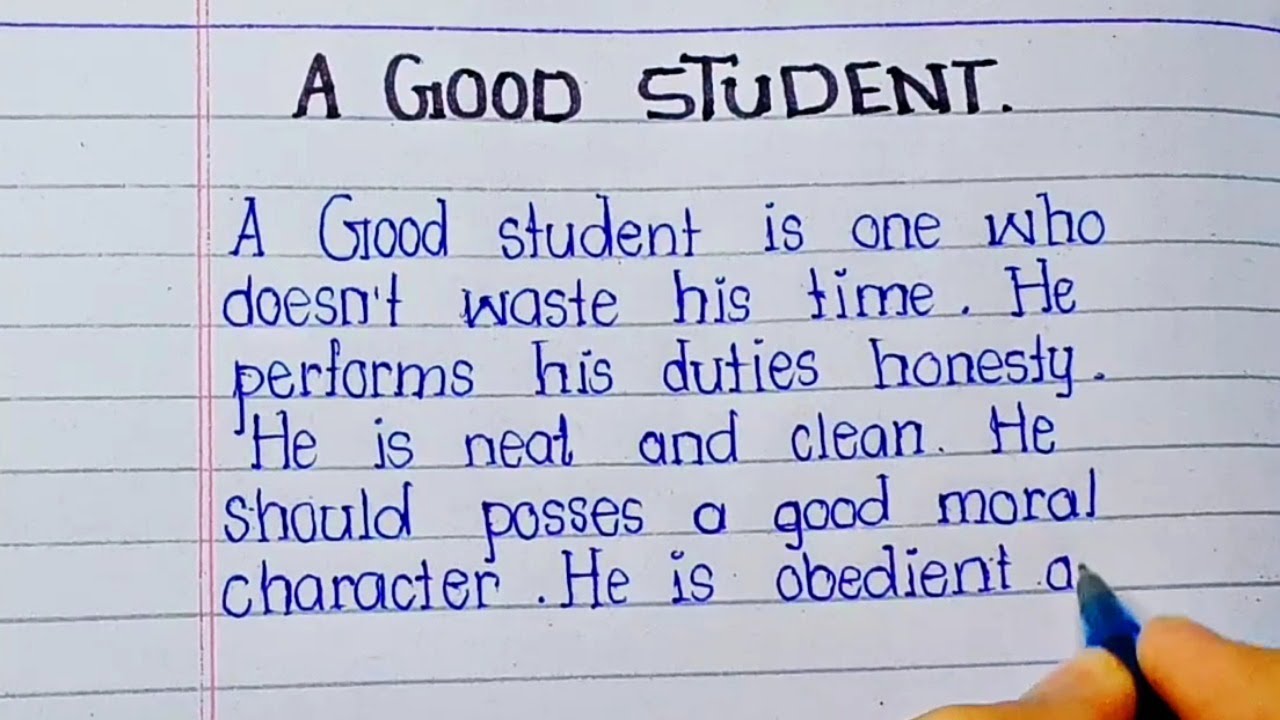 A GOOD STUDENT.
A Good student is one who
doesn't waste his time. He
performs his duties honesty.
He is neat and clean. He
should posses a good moral
character. He is obedient a